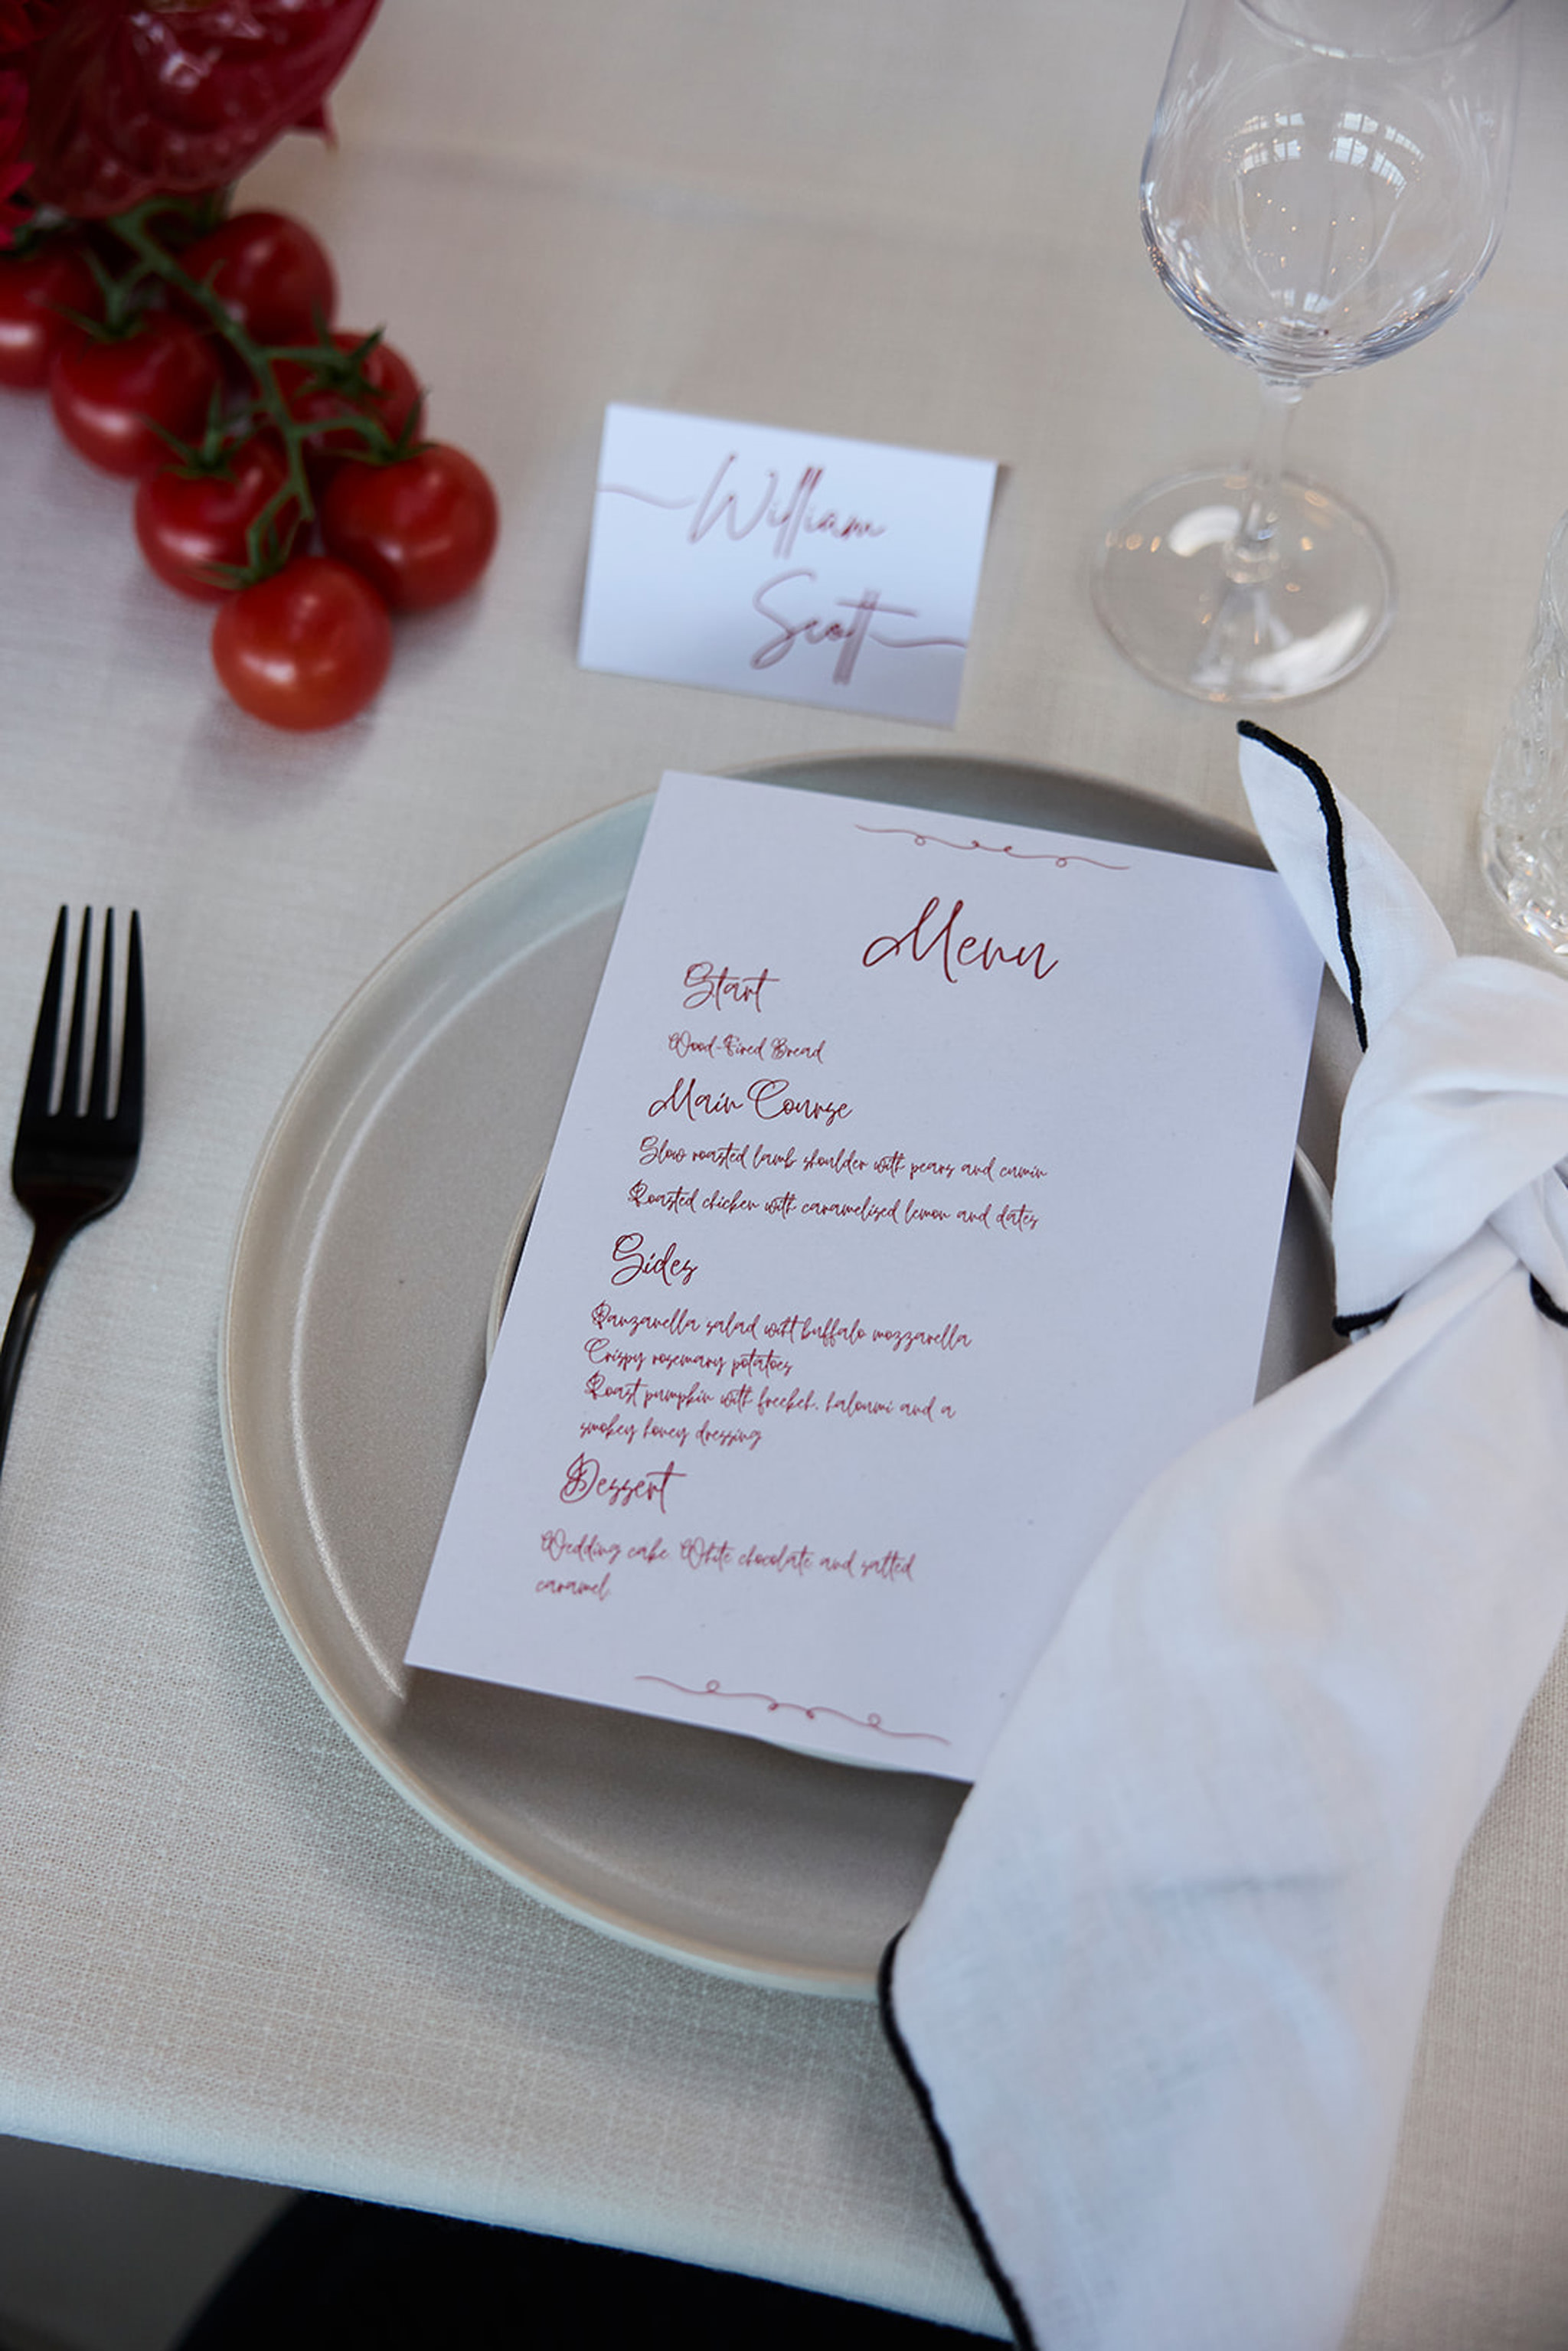 William
Scott
Menu
Start
Wood-Fired Bread
Main Course
Slow roasted lamb shoulder with pears and cumin
Roasted chicken with caramelised lemon and dates
Sides
Panzanella salad with buffalo mozzarella
Crispy rosemary potatoes
Roast pumpkin with freekeh, haloumi and a
smokey honey dressing
Dessert
Wedding cake: White chocolate and salted
caramel